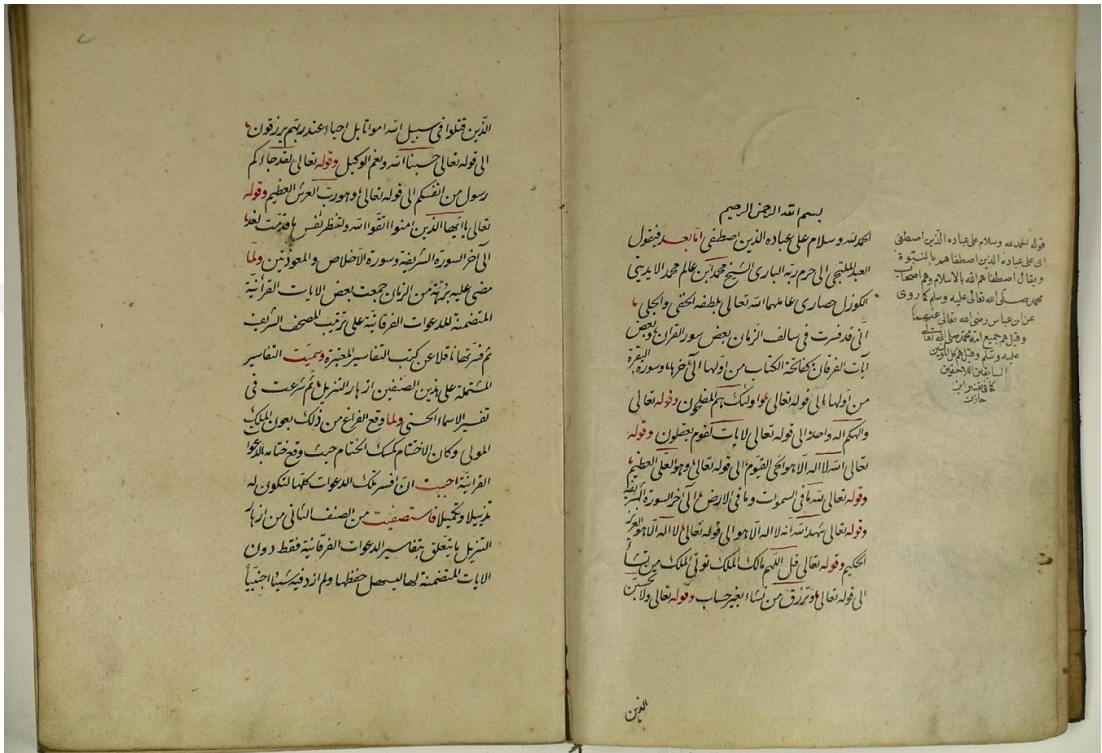 بسم الله الرحمن الرحيم
الحمد لله وسلام على عباده الذين اصطفى اما بعد فيقول
العبد الملتجي الى حرم ربه البارى الشيخ محمد ابن عالم محمد الايدينى
الكوزل حصارى عاملهما الله تعالى بلطفه الخفى والجلى
انى قد فسرت فى سالف الزمان بعض سور القرآن وبعض
آيات الفرقان كفاتحة الكتاب من اولها الى آخرها وسورة البقرة
من اولها الى قوله تعالى واولئك هم المفلحون وقوله تعالى
والهكم اله واحد الى قوله تعالى لايات لقوم يعقلون وقوله
تعالى الله لا اله الا هو الحى القيوم الى قوله تعالى وهو العلى العظيم
وقوله تعالى لله ما فى السموات وما فى الارض الى آخر السورة الشريفة
وقوله تعالى شهد الله انه لا اله الا هو الى قوله تعالى لا اله الا هو العزيز
الحكيم وقوله تعالى قل اللهم مالك الملك توتى الملك من تشاء
الى قوله تعالى وترزق من تشاء بغير حساب وقوله تعالى ولا تحسبن
الذين
قوله الحمد لله وسلام على عباده الذين اصطفى
اى على عباده الذين اصطفاهم بالنبوة
ويقال اصطفاهم الله بالاسلام وهم اصحاب
محمد صلى الله تعالى عليه وسلم كما روى
عن ابن عباس رضى الله تعالى عنهما
وقيل هم جميع امة محمد صلى الله تعالى
عليه وسلم وقيل هم كل المؤمنين
السابقين اللاحقين
كما فى تفسير
خازن
الذين قتلوا فى سبيل الله امواتا بل احياء عند ربهم يرزقون
الى قوله تعالى حسبنا الله ونعم الوكيل وقوله تعالى لقد جاءكم
رسول من انفسكم الى قوله تعالى وهو رب العرش العظيم وقوله
تعالى يا ايها الذين امنوا اتقوا الله ولتنظر نفس ما قدمت لغد
الى آخر السورة الشريفة وسورة الاخلاص والمعوذتين ولما
مضى عليه برهة من الزمان جمعت بعض الايات القرآنية
المتضمنة للدعوات الفرقانية على ترتيب المصحف الشريف
ثم فسرتها ناقلا عن كتب التفاسير المعتبرة وسميت التفاسير
المشتملة على هذين الصنفين ازهار التنزيل ثم شرعت فى
تفسير الاسماء الحسنى ولما وقع الفراغ من ذلك بعون الملك
المولى وكان الاختتام كمسك الختام حيث وقع ختامه بالدعوات
القرآنية احببت ان افسر تلك الدعوات كلها لتكون له
تذييلا وتكميلا فاستصفيت من الصنف الثانى من ازهار
التنزيل ما يتعلق بتفاسير الدعوات الفرقانية فقط دون
الايات المتضمنة لها ليسهل حفظها ولم ازد فيه شيئا اجنبيا